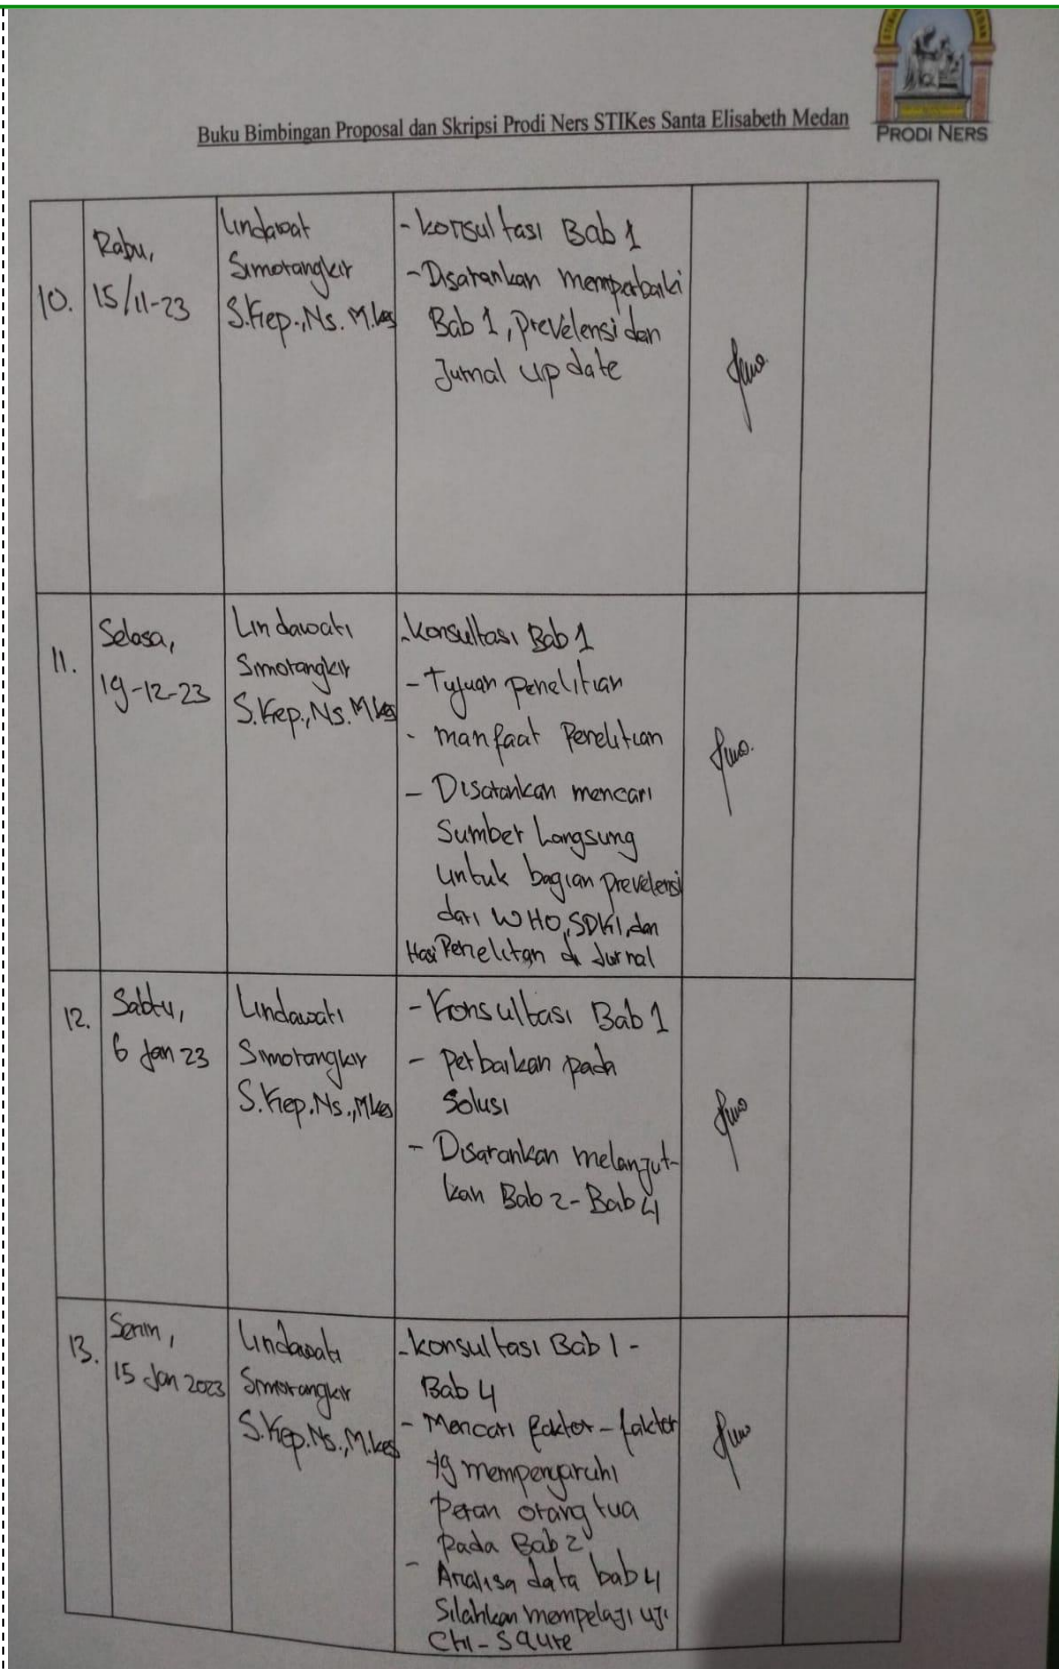 Buku Bimbingan Proposal dan Skripsi Prodi Ners STIKes Santa Elisabeth Medan
PRODI NERS
10.
Rabu,
15/11-23
Lindawat
Simorangkir
S.Kep.,Ns. M.kes
- konsultasi Bab 1
- Disarankan memperbaiki
Bab 1, prevelensi dan
Jurnal update
11.
Selasa,
19-12-23
Lindawati
Simorangkir
S.Kep.,Ns. M.kes
- Konsultasi Bab 1
- Tujuan penelitian
- manfaat Penelitian
- Disarankan mencari
Sumber Langsung
untuk bagian prevelensi
dari WHO, SDKI, dan
Hasi Penelitan di Jurnal
12.
Sabtu,
6 Jan 23
Lindawati
Simorangkir
S.Kep.Ns.,Mkes
- Konsultasi Bab 1
- perbaikan pada
Solusi
- Disarankan melanjut-
kan Bab 2 - Bab 4
13.
Senin,
15 Jan 2023
Lindawati
Simorangkir
S.Kep.Ns.,M.kes
- konsultasi Bab 1 -
Bab 4
- Mencari faktor - faktor
yg mempengaruhi
Peran orang tua
pada Bab 2
- Analisa data bab 4
Silahkan mempelaji uji
Chi - Saure